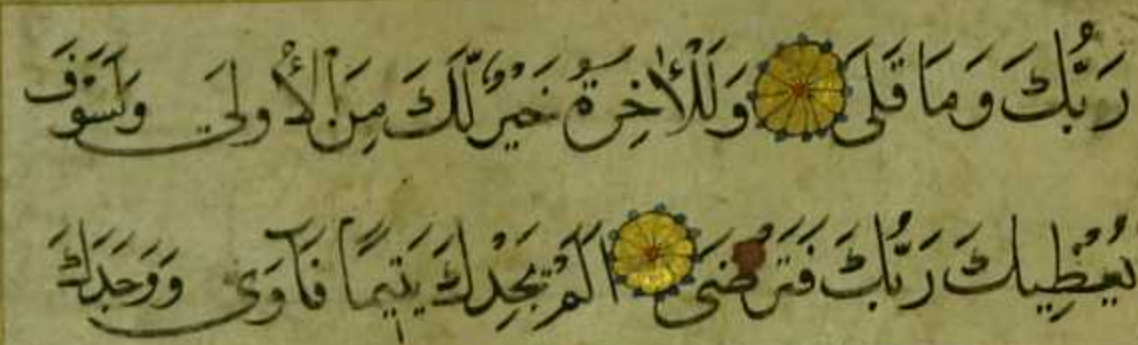 رَبُّكَ وَمَا قَلَى وَلَلْاٰخِرَةُ خَيْرٌ لَّكَ مِنَ الْأُولَى وَلَسَوْفَ
يُعْطِيكَ رَبُّكَ فَتَرْضَى اَلَمْ يَجِدْكَ يَتِيمًا فَآوَى وَوَجَدَكَ